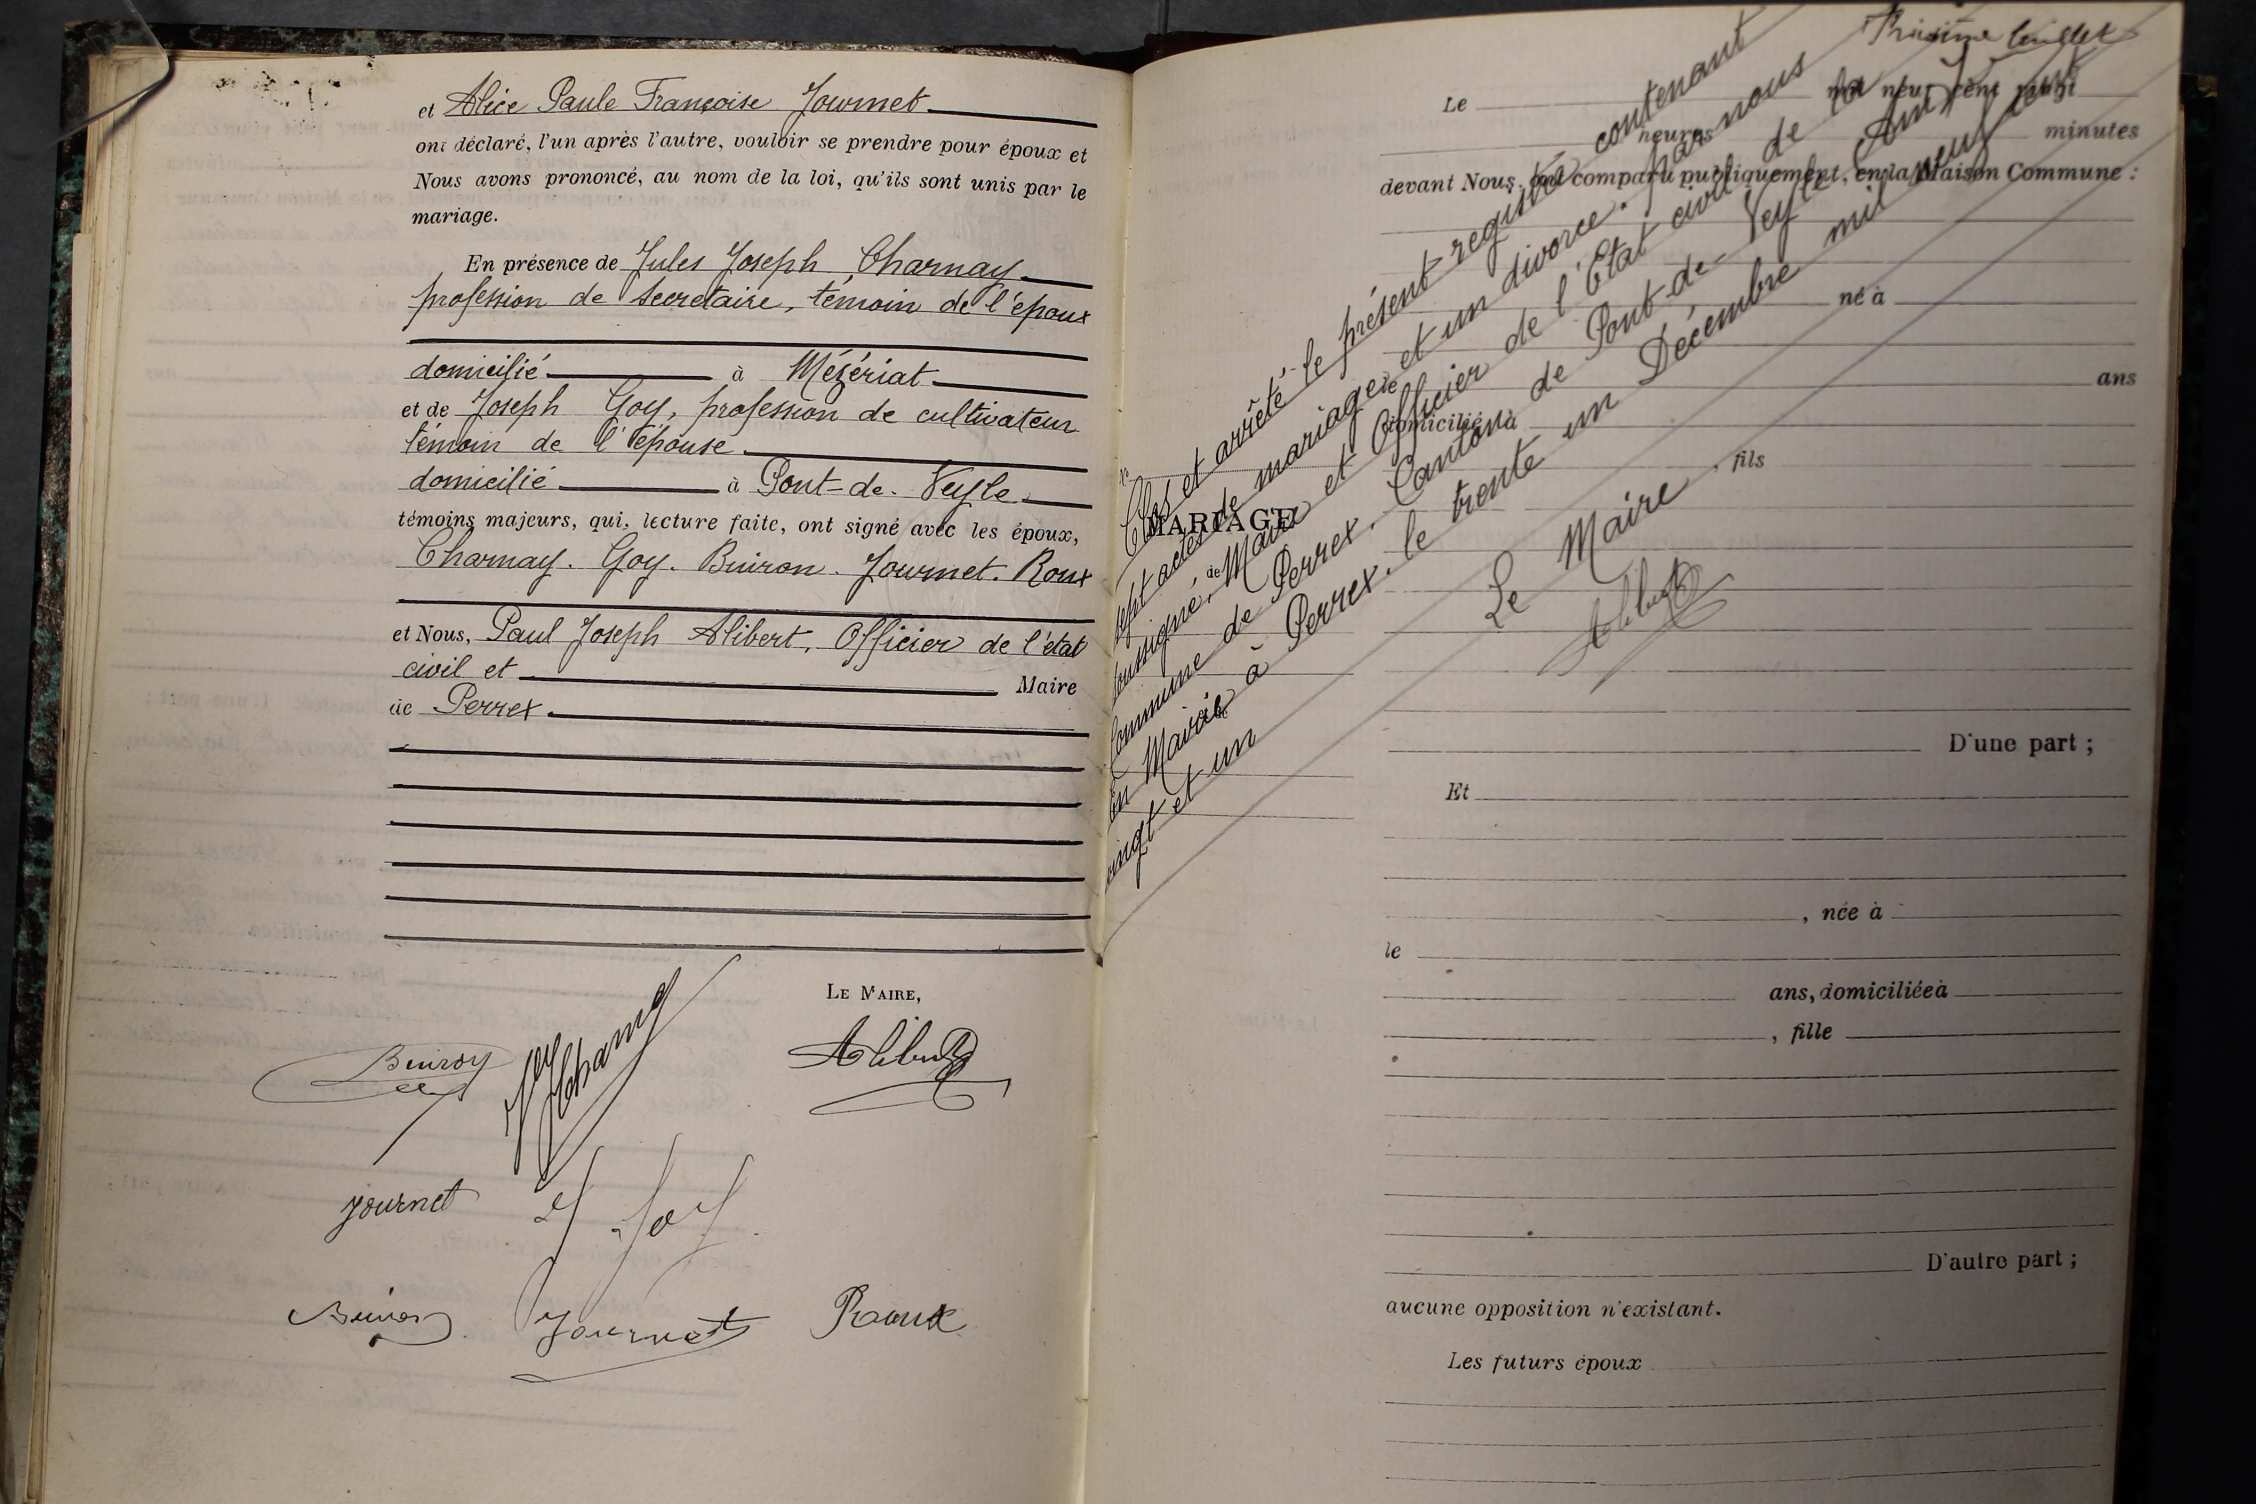 et Alice Paule Françoise Journet
ont déclaré, l'un après l'autre, vouloir se prendre pour époux et
Nous avons prononcé, au nom de la loi, qu'ils sont unis par le
mariage.
En présence de Jules Joseph Charnay
profession de secretaire, témoin de l'époux
domicilié à Mézériat
et de Joseph Goy, profession de cultivateur
témoin de l'épouse
domicilié à Pont-de-Veyle
témoins majeurs, qui, lecture faite, ont signé avec les époux,
Charnay. Goy. Buiron. Journet. Roux
et Nous, Paul Joseph Alibert, Officier de l'état
civil et Maire
de Perrex
LE MAIRE,
Buiron
Charnay
Alibert
Journet
Goy
Buiron
Journet
Roux
feuillet
Le mil neuf cent vingt
heures minutes
devant Nous, ont comparu publiquement, en la Maison Commune :
né à
ans
domicilié à
, fils
MARIAGE
de
D'une part ;
Et
, née à
le
ans, domiciliée à
, fille
D'autre part ;
aucune opposition n'existant.
Les futurs époux
Clos et arrêté le présent registre contenant
sept actes de mariage et un divorce. par nous
soussigné, Maire et Officier de l'Etat civil de la
Commune de Perrex, Canton de Pont-de-Veyle (Ain)
En Mairie à Perrex, le trente un Décembre mil neuf cent
vingt et un
Le Maire
Alibert